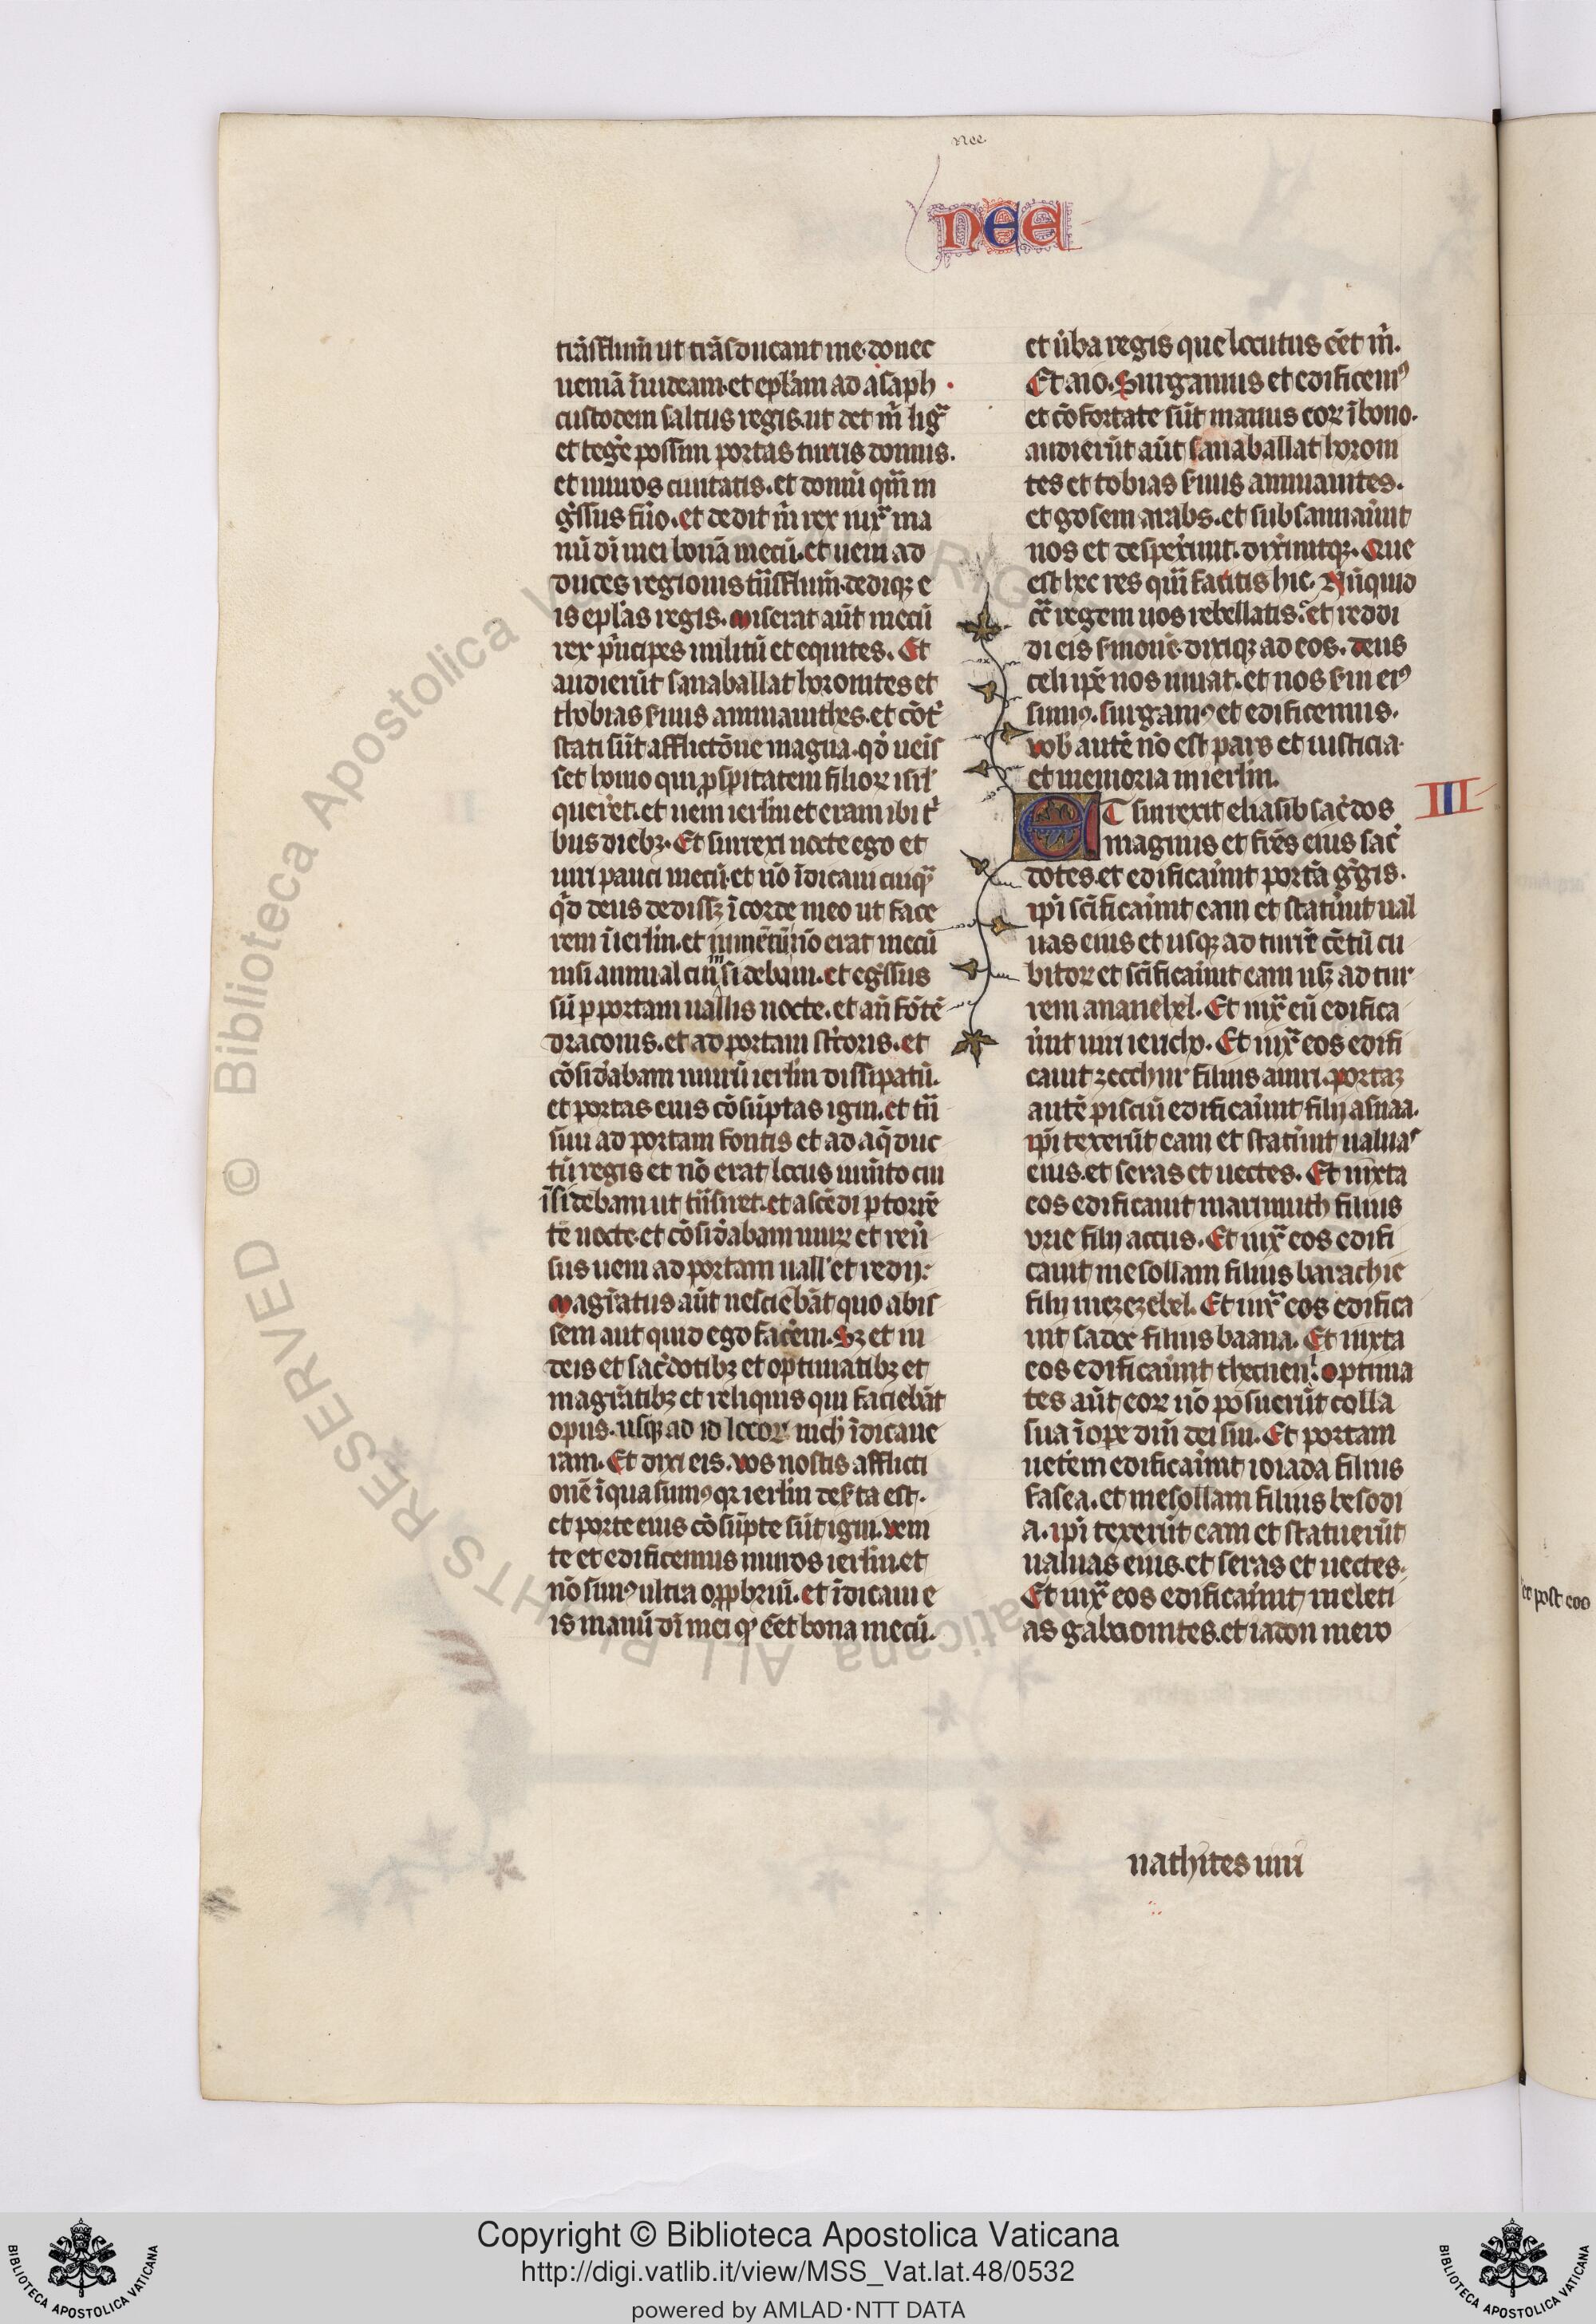 nee
NEE
trãsflum̃ ut trãsducant me. donec
ueniã ĩ iudeam. et ep̃lam ad asaph.
custodem saltus regis. ut det m̃ ligͣ
et teg̃e possim portas turris domus.
et muros ciuitatis. et domũ q̃m in
g̃ssus fũo. et dedit m̃ rex iuxͣ ma
nũ dĩ mei bonã mecũ. et ueni ad
duces regionis tñsflum̃. dediqꝫ e
is ep̃las regis. miserat aũt mecũ
rex p̃ncipes militũ et equites. Et
audierũt sanaballat horonites et
thobias ẜuus ammanithes. et cõt̃
stati sũt afflictõne magna. qđ ueĩs
set homo qui ꝓsp̃itatem filioꝝ isrł
quer̃et. et ueni ierłm et eram ibi t̃
bus diebꝫ. Et surrexi nocte ego et
uiri pauci mecũ. et nõ ĩdicaui cuiqͣ
qđ deus dedissꝫ ĩ corde meo ut face
rem ĩ ierłm. et iumẽtũ nõ erat mecũ
nisi animal cui ĩsidebam. et eg̃ssus
sũ ꝑ portam uallis nocte. et añ fõtẽ
draconis. et ad portam st̃coris. et
cõsid̃abam murũ ierłm dissipatũ.
et portas eius cõsũptas igni. et tñ
siui ad portam fontis et ad aq̃duc
tũ regis et nõ erat locus ium̃to cui
ĩsidebam ut tñsiret. et ascẽdi ꝑ torrẽ
tẽ nocte. et cõsid̃abam murꝝ et reũ
sus ueni ad portam uall' et redij:
magr̃atus aũt nesciebãt quo abis
sem aut quid ego fac̃em. Sꝫ et iu
deis et sac̃dotibꝫ et optimatibꝫ et
magr̃atibꝫ et reliquis qui faciebãt
opus. usqꝫ ad id locoꝝ nich' ĩdicaue
ram. Et dixi eis. vos nostis afflicti
onẽ ĩ qua sumꝰ qꝛ ierłm deẜta est.
et porte eius cõsũpte sũt igni. veni
te et edificemus muros ierłm. et
nõ simꝰ ultra opp̃briũ. et ĩdicaui e
is manũ dĩ mei qͩ eẽt bona mecũ.
et ũba regis que locutus eẽt m̃.
Et aio. Surgamus et edificemꝰ
et cõfortate sũt manus eoꝝ ĩ bono.
audierũt aũt sanaballat horoni
tes et tobias ẜuus ammanites.
et gosem arabs. et subsannaũnt
nos et despex̃unt. dix̃untqꝫ. Que
est hec res quã facitis hic. Nũquid
cͣ regem uos rebellatis. et reddi
di eis ẜmonẽ. dixiqꝫ ad eos. deus
celi ip̃e nos iuuat. et nos ẜui eiꝰ
sumꝰ. surgamꝰ et edificemus.
vob' autẽ nõ est pars et iusticia
et memoria in ierłm.
III
ET surrexit eliasib sac̃dos
magnus et fr̃es eius sac̃
dotes. et edificaũnt portã g̃gis.
ip̃i sc̃ificaũnt eam et statũnt ual
uas eius et usqꝫ ad turrẽ cẽtũ cu
bitoꝝ et sc̃ificaũnt eam usꝫ ad tur
rem ananehel. Et iuxͣ eũ edifica
ũnt uiri iericho. Et iuxͣ eos edifi
cauit zecchur filius amri. portaꝫ
autẽ pisciũ edificaũnt filij asnaa.
ip̃i texerũt eam et statũnt ualuas
eius. et seras et uectes. Et iuxta
eos edificauit marimuth filius
vrie filij accus. Et iuxͣ eos edifi
cauit mesollam filius barachie
filij mezezebel. Et iuxͣ eos edifica
uit sadoc filius baana. Et iuxta
eos edificaũnt thecueni. optima
tes aũt eoꝝ nõ posuerũt colla
sua ĩ ope dñi dei sui. Et portam
uet̃em edificaũnt ioiada filius
fasea. et mesollam filius besodi
a. ip̃i texerũt eam et statuerũt
ualuas eius. et seras et uectes.
Et iuxͣ eos edificaũnt meleti
as gabaonites. et iadon mero
nathites uiri
post eos
Copyright © Biblioteca Apostolica Vaticana
http://digi.vatlib.it/view/MSS_Vat.lat.48/0532
powered by AMLAD·NTT DATA
BIBLIOTECA APOSTOLICA VATICANA
BIBLIOTECA APOSTOLICA VATICANA
© Biblioteca Apostolica Vaticana ALL RIGHTS RESERVED